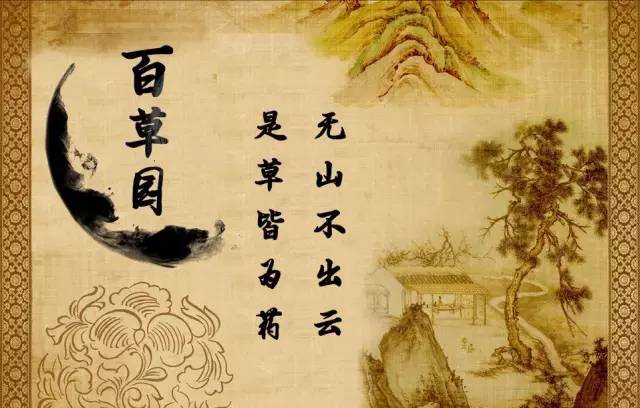 百草园
无山不出云
是草皆为药